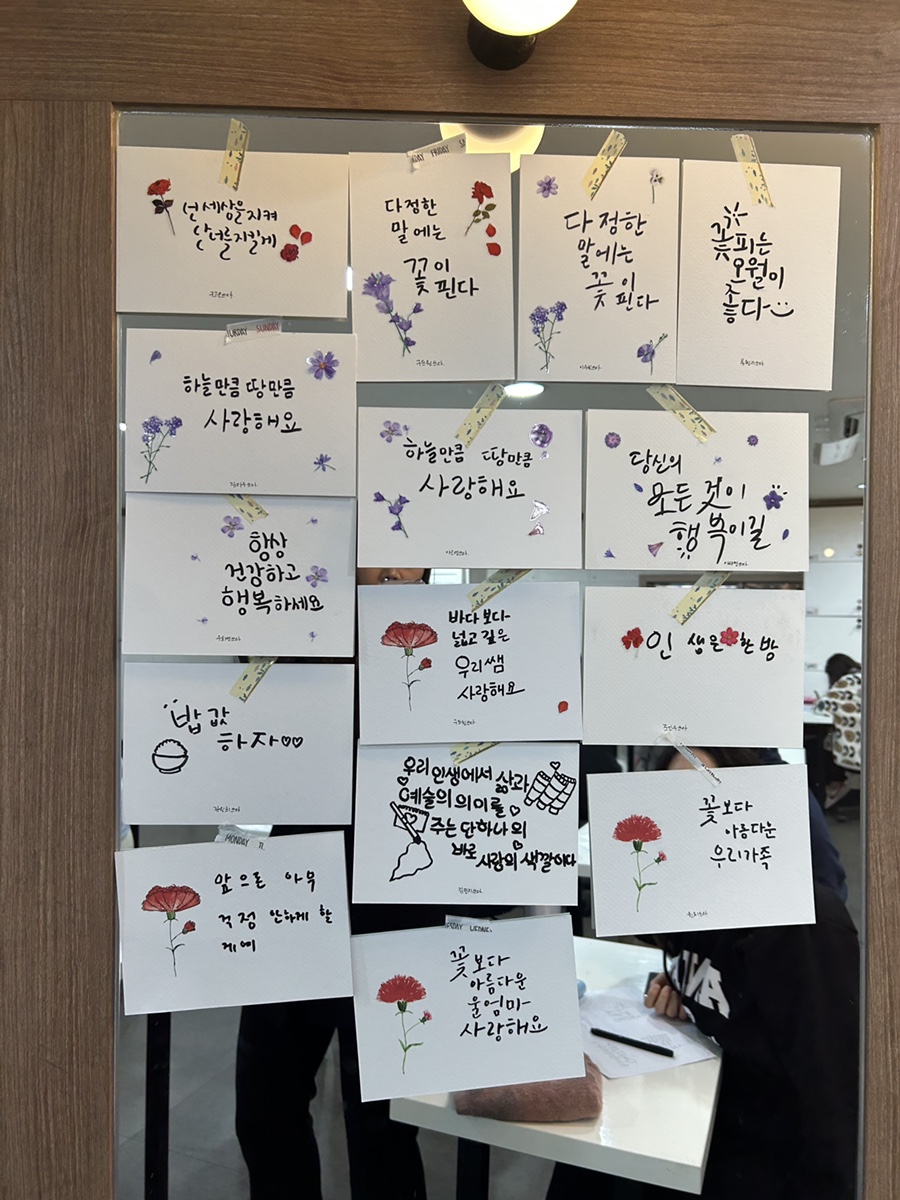 넌 세상을 지켜
난 너를 지킬게
다정한
말에는
꽃이
핀다
다정한
말에는
꽃이
핀다
꽃피는
오월이
좋다
하늘만큼 땅만큼
사랑해요
하늘만큼 땅만큼
사랑해요
당신의
모든 것이
행복이길
항상
건강하고
행복하세요
바다보다
넓고 깊은
우리쌤
사랑해요
인생은 한 방
밥값
하자
우리 인생에서 삶과
예술의 의미를
주는 단 하나의
바로
사랑의 색깔이다
꽃보다
아름다운
우리가족
앞으론 아무
걱정 안하게 할
게예
꽃보다
아름다운
울엄마
사랑해요
FRIDAY
SUNDAY
MONDAY